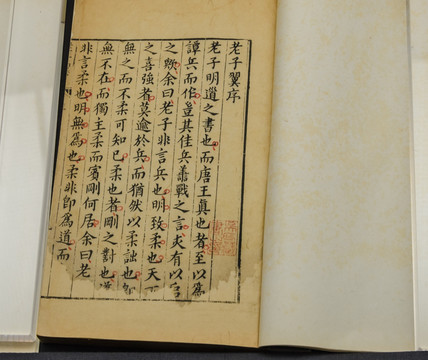 老子翼序
老子明道之書也而唐王真也者至以為
譚兵而作豈其佳兵善戰之言亦有以啓
之歟余曰老子非言兵也明致柔也天下
之喜強者莫逾於兵而猶然以柔詘也
無之而不柔可知已柔也者剛之對也道
無不在而獨主柔而賓剛何居余曰老
非言柔也明無為也柔非即為道而